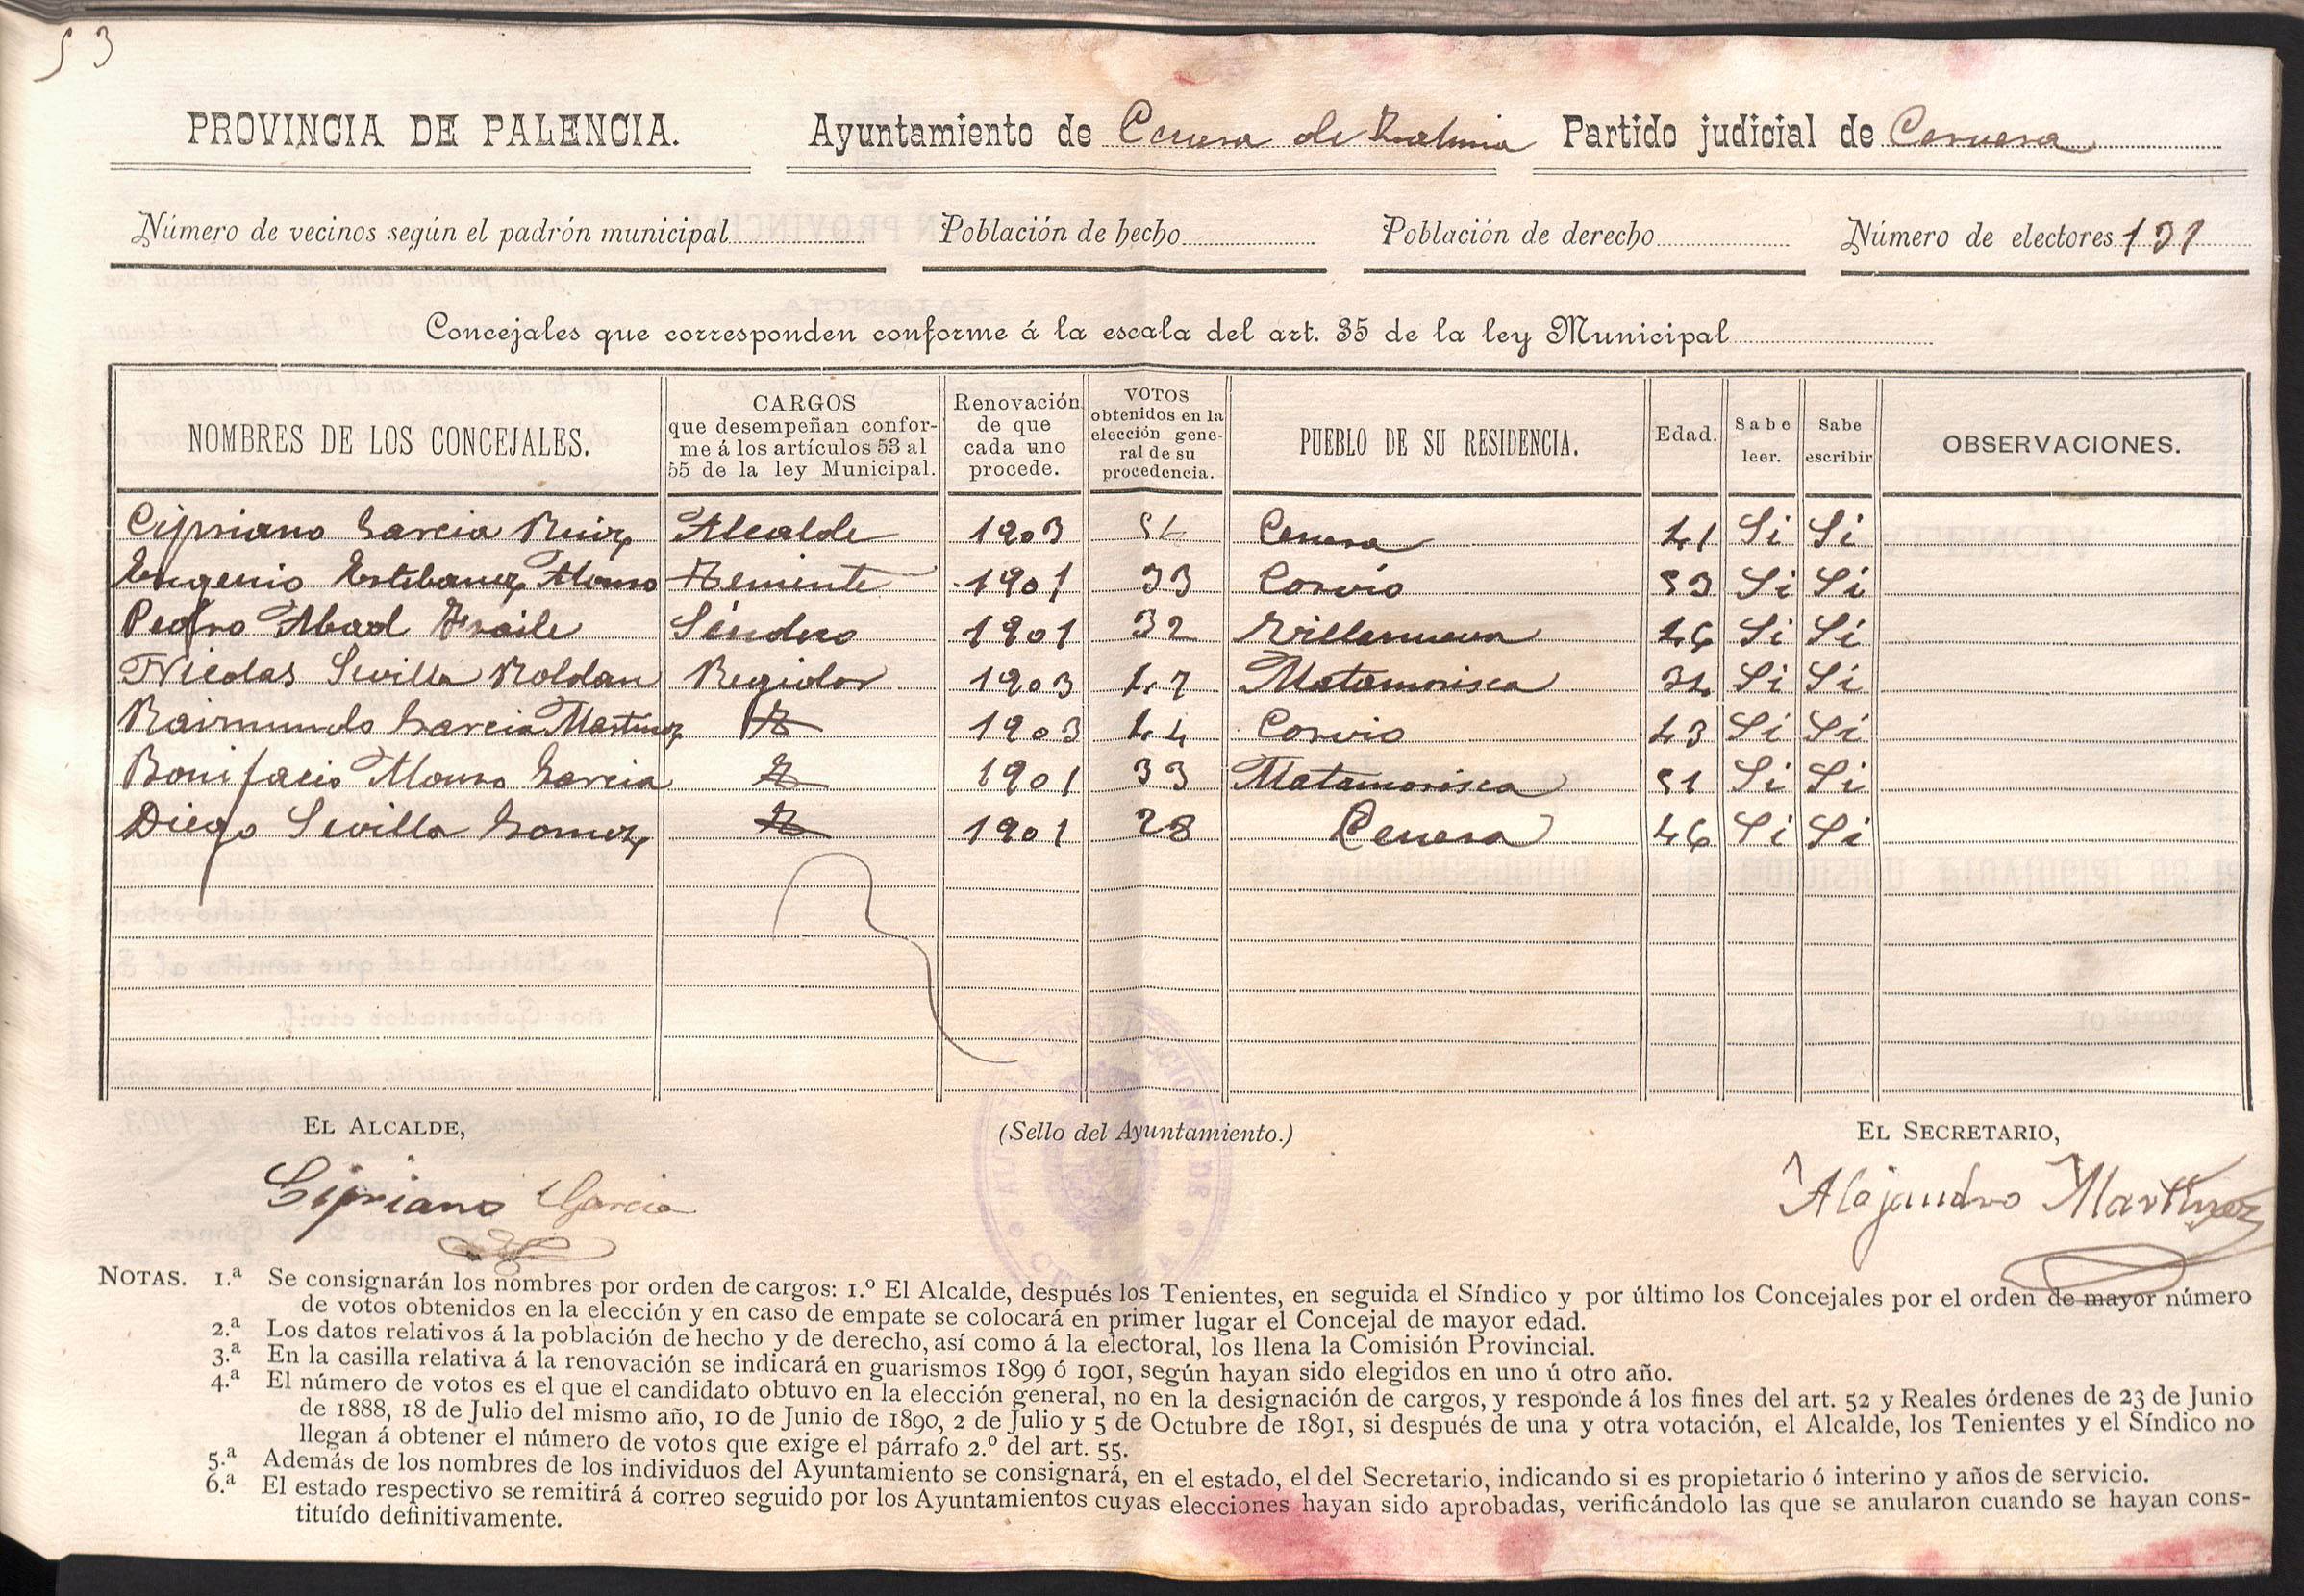 53
PROVINCIA DE PALENCIA. Ayuntamiento de Cenera de Zalima Partido judicial de Cervera
Número de vecinos según el padrón municipal Población de hecho Población de derecho Número de electores 191
Concejales que corresponden conforme á la escala del art. 35 de la ley Municipal
NOMBRES DE LOS CONCEJALES. CARGOS que desempeñan confor- me á los artículos 53 al 55 de la ley Municipal. Renovación de que cada uno procede. VOTOS obtenidos en la elección gene- ral de su procedencia. PUEBLO DE SU RESIDENCIA. Edad. Sabe leer. Sabe escribir OBSERVACIONES.
Cipriano Garcia Ruiz Alcalde 1903 54 Cenera 41 Si Si
Eugenio Estebanez Alonso Teniente 1901 33 Corvio 53 Si Si
Pedro Abad Fraile Síndico 1901 32 Villanueva 46 Si Si
Nicolas Sevilla Roldan Regidor 1903 47 Matamorisca 34 Si Si
Raimundo Garcia Martinez 1903 44 Corvio 43 Si Si
Bonifacio Alonso Garcia 1901 33 Matamorisca 51 Si Si
Diego Sevilla Gomez 1901 28 Cenera 46 Si Si
EL ALCALDE, (Sello del Ayuntamiento.) EL SECRETARIO,
Cipriano Garcia Alejandro Martinez
NOTAS. 1.ª Se consignarán los nombres por orden de cargos: 1.º El Alcalde, después los Tenientes, en seguida el Síndico y por último los Concejales por el orden de mayor número
de votos obtenidos en la elección y en caso de empate se colocará en primer lugar el Concejal de mayor edad.
2.ª Los datos relativos á la población de hecho y de derecho, así como á la electoral, los llena la Comisión Provincial.
3.ª En la casilla relativa á la renovación se indicará en guarismos 1899 ó 1901, según hayan sido elegidos en uno ú otro año.
4.ª El número de votos es el que el candidato obtuvo en la elección general, no en la designación de cargos, y responde á los fines del art. 52 y Reales órdenes de 23 de Junio
de 1888, 18 de Julio del mismo año, 10 de Junio de 1890, 2 de Julio y 5 de Octubre de 1891, si después de una y otra votación, el Alcalde, los Tenientes y el Síndico no
llegan á obtener el número de votos que exige el párrafo 2.º del art. 55.
5.ª Además de los nombres de los individuos del Ayuntamiento se consignará, en el estado, el del Secretario, indicando si es propietario ó interino y años de servicio.
6.ª El estado respectivo se remitirá á correo seguido por los Ayuntamientos cuyas elecciones hayan sido aprobadas, verificándolo las que se anularon cuando se hayan cons-
tituído definitivamente.